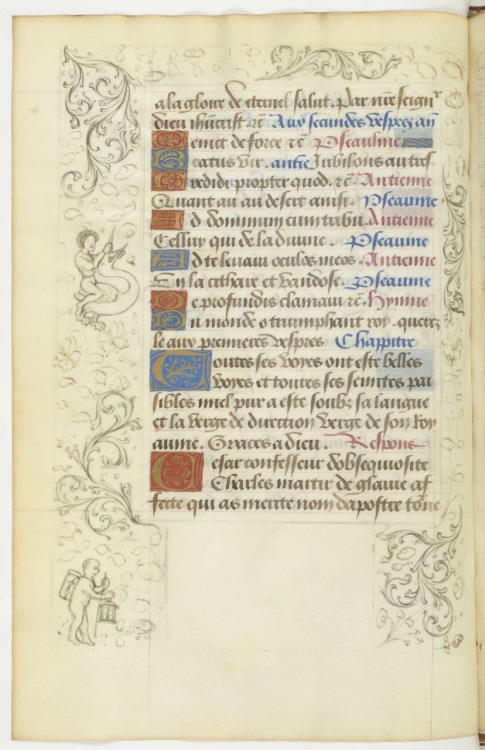 a la gloire de eternel salut. Par nr̄e seignr
dieu ih̄ucrist ⁊c̄ Aux secundes vespez an̄
Cemct de force ⁊c̄ Pseaulme
Beatus vir. antie Jubilons au tres
Credidi propter quod. ⁊c̄ Antienne
Quant au au desert Pseaume
Ad dominum cum tribu. Antienne
Celluy qui de la diuine. Pseaume
Ad te leuaui oculos meos. Antienne
En la cithare et bandose. Pseaume
De profundis clamaui ⁊c̄ Hymne
Du monde o triumphant roy. querez
le aux premieres vespres Chappitre
Toutes ses voyes ont este belles
voyes et toutes ses sentes pai
sibles miel pur a este soubz sa langue
et la verge de direction verge de son Roy
aume. Graces a dieu. Respons
Cesar confesseur dobsequiosite
Charles martir de glaiue af
fecte qui as merite nom dapostre